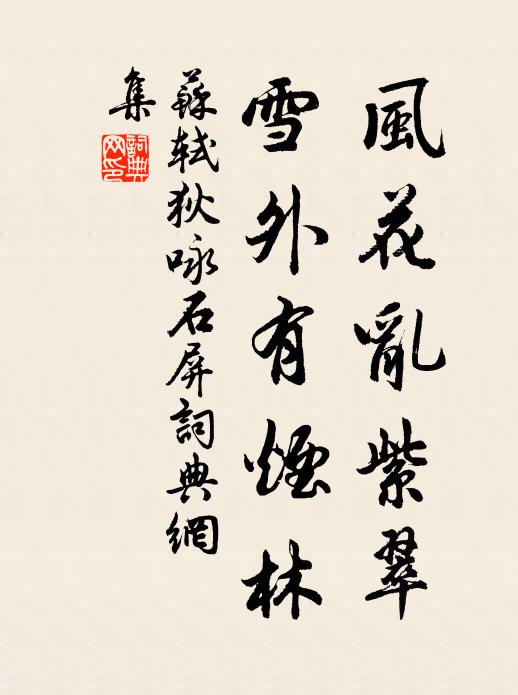 風花亂紫翠
雪外有煙林
蘇軾狄咏石屏詞典網
集
詞典
网印